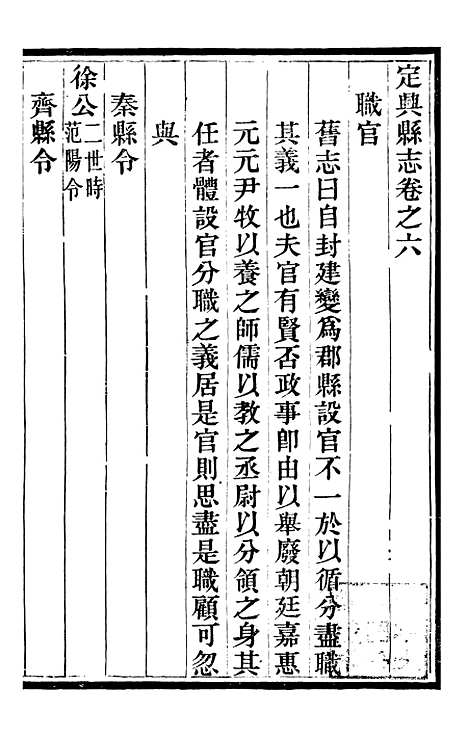 定興縣志卷之六
職官
舊志曰自封建變爲郡縣設官不一於以循分盡職
其義一也夫官有賢否政事卽由以舉廢朝廷嘉惠
元元尹牧以養之師儒以教之丞尉以分領之身其
任者體設官分職之義居是官則思盡是職顧可忽
與
秦縣令
徐公二世時范陽令
齊縣令